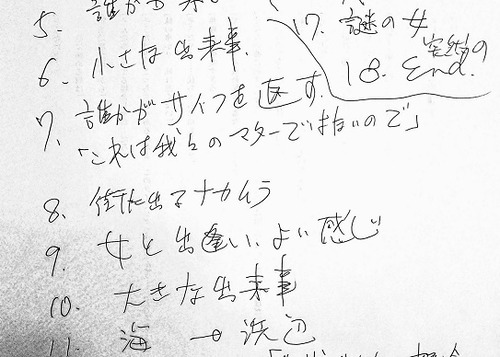 5. 誰かも
6. 小さな出来事.
7. 誰かがサイフを返す.
「これは我々のマターではないので」
8. 街に出るナカムラ
9. 女と出逢い、よい感じ
10. 大きな出来事
11. 海 → 浜辺
17. 謎の女
突然の
18. End.